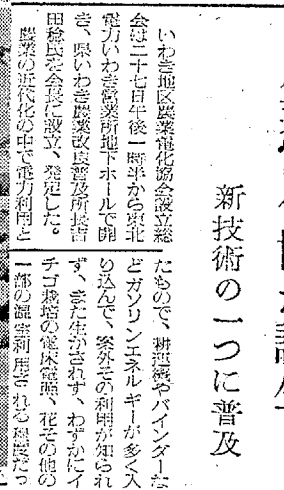 新技術の一つに普及
いわき地区農業電化協会設立総
会は二十七日午後一時半から東北
電力いわき営業所地下ホールで開
き、県いわき農業改良普及所長吉
田稔民を会長に設立、発足した。
農業の近代化の中で電力利用と
たもので、耕運機やバインダーな
どガソリンエネルギーが多く入
り込んで、案外その利用が知られ
ず、また生かされず、わずかにイ
チゴ栽培の電床電源、花その他の
一部の温室利用される程度だっ